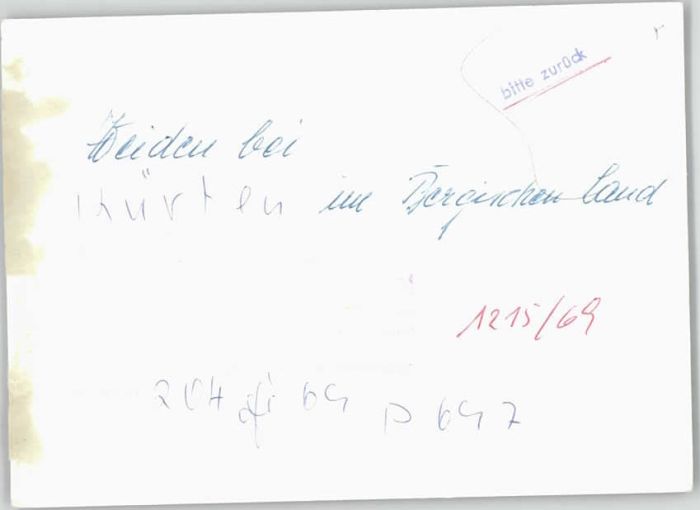 bitte zurück
Weiden bei
Kürten im Bergischen Land
1215/69
204 69 D 697